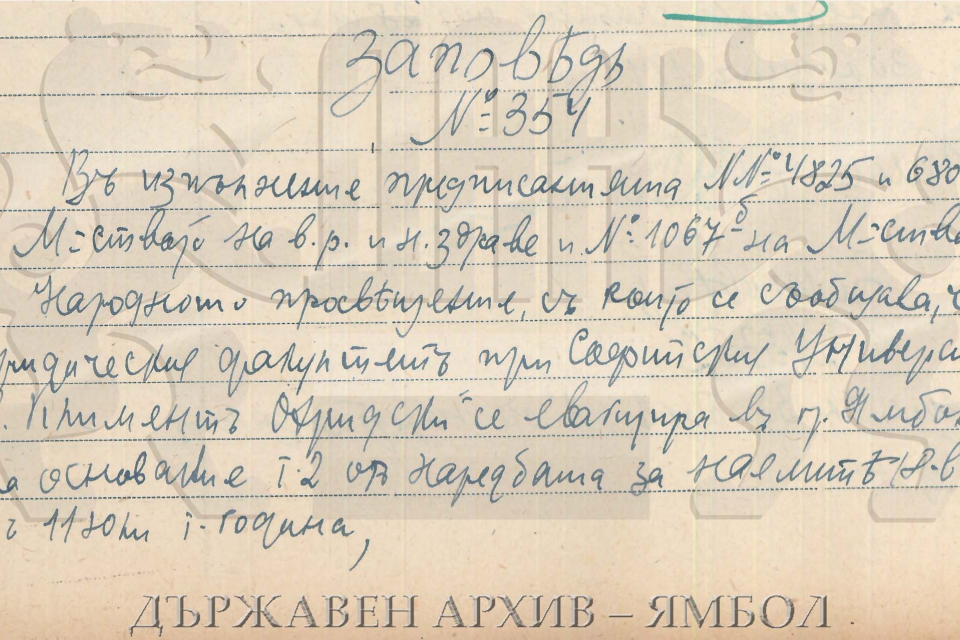 Заповѣдь
№ 354
Въ изпълнение предписанията №№ 4825 и 680
М-ството на в.р. и н. здраве и № 1067 б на М-ство
Народното просвѣщение, съ които се съобщава, ч
ридически факултетъ при Софийския Универси
. Климентъ Охридски" се евакуира въ гр. Ямбол
а основание т. 2 отъ Наредбата за наемитѣ
11 юли т. година,
ДЪРЖАВЕН АРХИВ – ЯМБОЛ